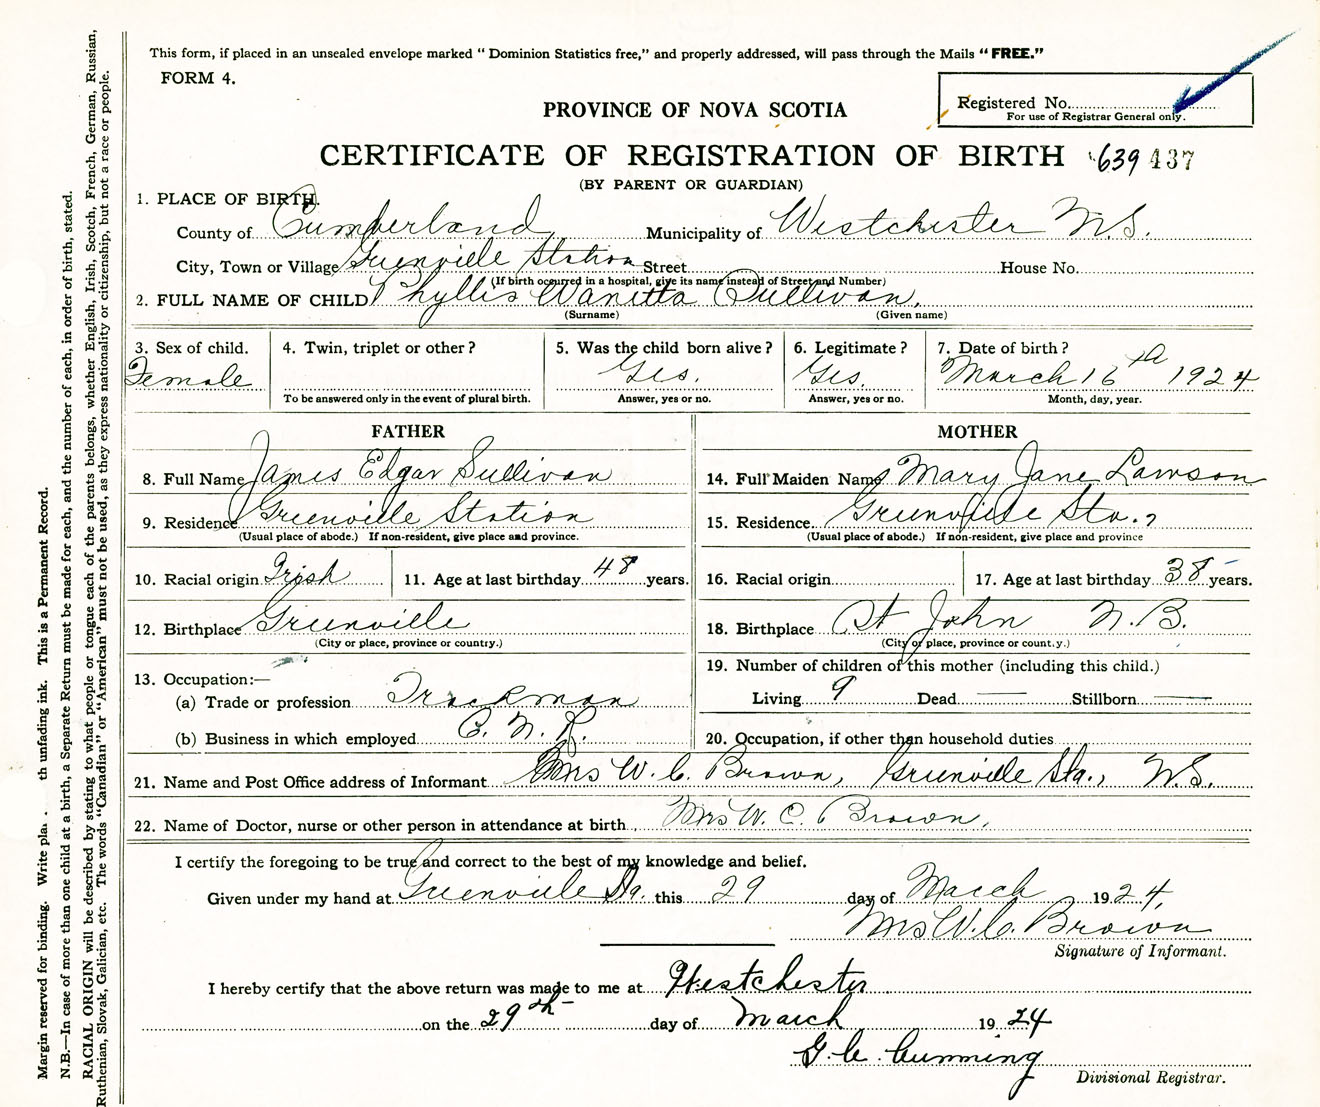 This form, if placed in an unsealed envelope marked "Dominion Statistics free," and properly addressed, will pass through the Mails "FREE."
FORM 4.
Registered No.
For use of Registrar General only.
PROVINCE OF NOVA SCOTIA
CERTIFICATE OF REGISTRATION OF BIRTH 639 437
(BY PARENT OR GUARDIAN)
1. PLACE OF BIRTH.
County of Cumberland Municipality of Westchester N.S.
City, Town or Village Greenville Station Street House No.
(If birth occurred in a hospital, give its name instead of Street and Number)
2. FULL NAME OF CHILD Phyllis Wanitta Sullivan.
(Surname) (Given name)
3. Sex of child. 4. Twin, triplet or other? 5. Was the child born alive? 6. Legitimate? 7. Date of birth?
Female Yes. Yes. March 16th 1924
To be answered only in the event of plural birth. Answer, yes or no. Answer, yes or no. Month, day, year.
FATHER MOTHER
8. Full Name James Edgar Sullivan 14. Full Maiden Name Mary Jane Lawson
9. Residence Greenville Station 15. Residence. Greenville Sta.,
(Usual place of abode.) If non-resident, give place and province. (Usual place of abode.) If non-resident, give place and province
10. Racial origin Irish 11. Age at last birthday 48 years. 16. Racial origin 17. Age at last birthday 38 years.
12. Birthplace Greenville 18. Birthplace St John N.B.
(City or place, province or country.) (City or place, province or count.y.)
13. Occupation:— 19. Number of children of this mother (including this child.)
(a) Trade or profession Trackman Living 9 Dead — Stillborn —
(b) Business in which employed C.N.R. 20. Occupation, if other than household duties
21. Name and Post Office address of Informant Mrs W. C. Brown, Greenville Sta., N.S.
22. Name of Doctor, nurse or other person in attendance at birth Mrs W. C. Brown.
I certify the foregoing to be true and correct to the best of my knowledge and belief.
Given under my hand at Greenville Sta. this 29 day of March 1924,
Mrs W. C. Brown
Signature of Informant.
I hereby certify that the above return was made to me at Westchester
on the 29th day of March 1924
G. C. Cumming
Divisional Registrar.
Margin reserved for binding. Write pla . th unfading ink. This is a Permanent Record.
N.B.—In case of more than one child at a birth, a Separate Return must be made for each, and the number of each, in order of birth, stated.
RACIAL ORIGIN will be described by stating to what people or tongue each of the parents belongs, whether English, Irish, Scotch, French, German, Russian,
Ruthenian, Slovak, Galician, etc. The words "Canadian" or "American" must not be used, as they express nationality or citizenship, but not a race or people.